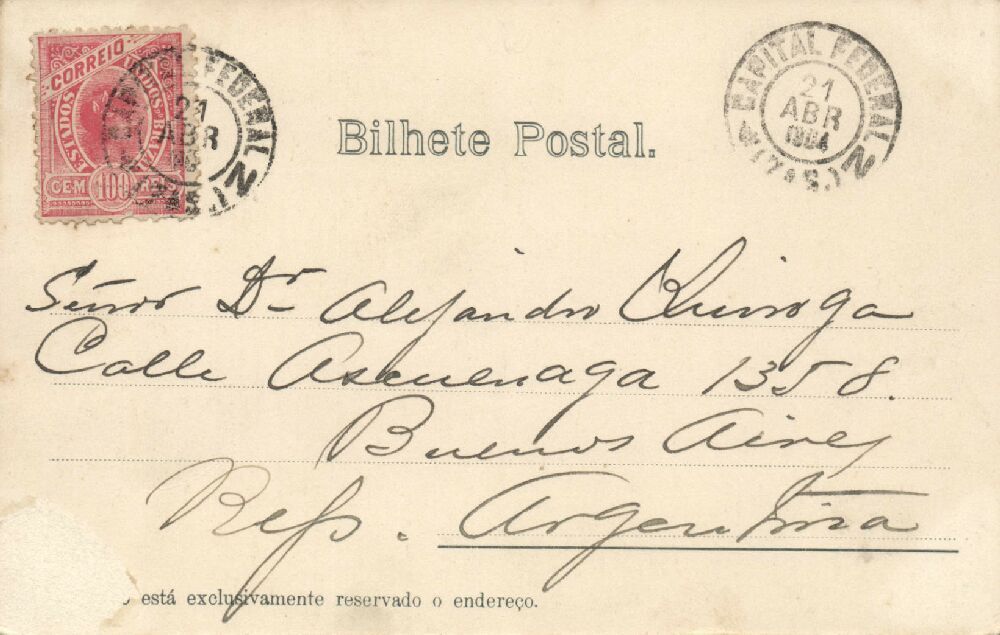 CORREIO
ESTADOS UNIDOS DO BRAZIL
CEM 100 REIS
CAPITAL FEDERAL
21
ABR
Bilhete Postal.
CAPITAL FEDERAL
21
ABR
1904
Señor Dr Alejandro Quiroga
Calle Ascuenaga 1358.
Buenos Aires
Rep. Argentina
está exclusivamente reservado o endereço.